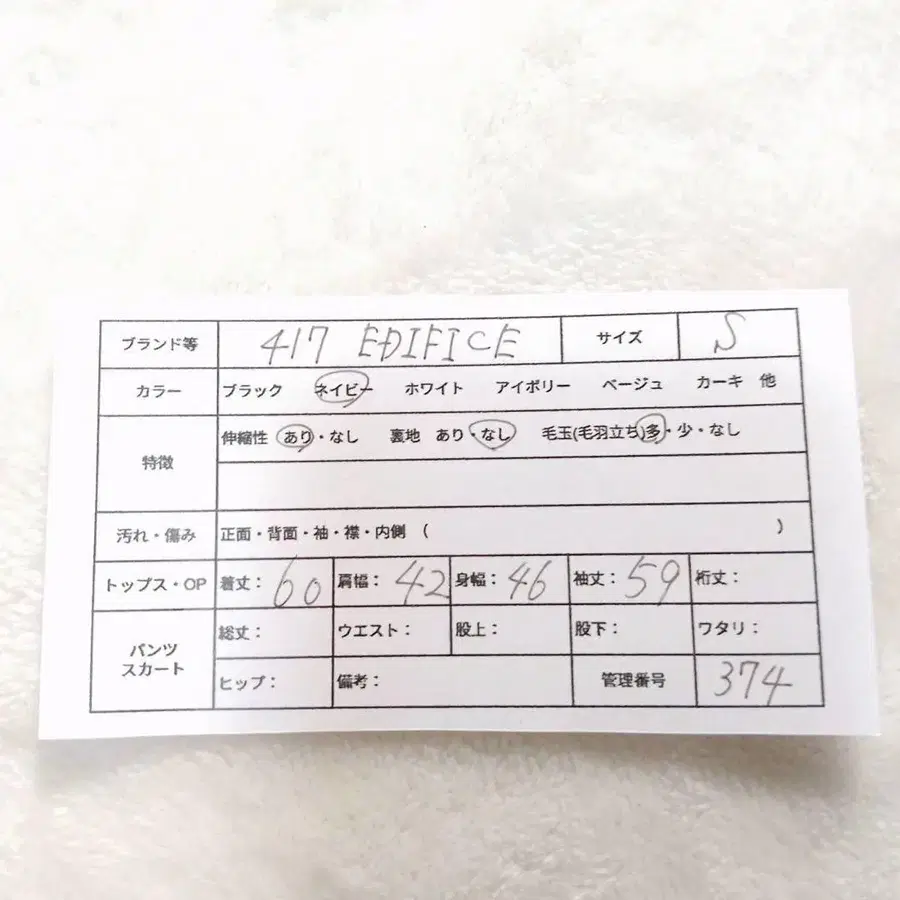 ブランド等 417 EDIFICE サイズ S
カラー ブラック ネイビー ホワイト アイボリー ベージュ カーキ 他
特徴 伸縮性 あり・なし 裏地 あり・なし 毛玉(毛羽立ち)多・少・なし
汚れ・傷み 正面・背面・袖・襟・内側 ( )
トップス・OP 着丈: 60 肩幅: 42 身幅: 46 袖丈: 59 裄丈:
パンツ スカート 総丈: ウエスト: 股上: 股下: ワタリ:
ヒップ: 備考: 管理番号 374